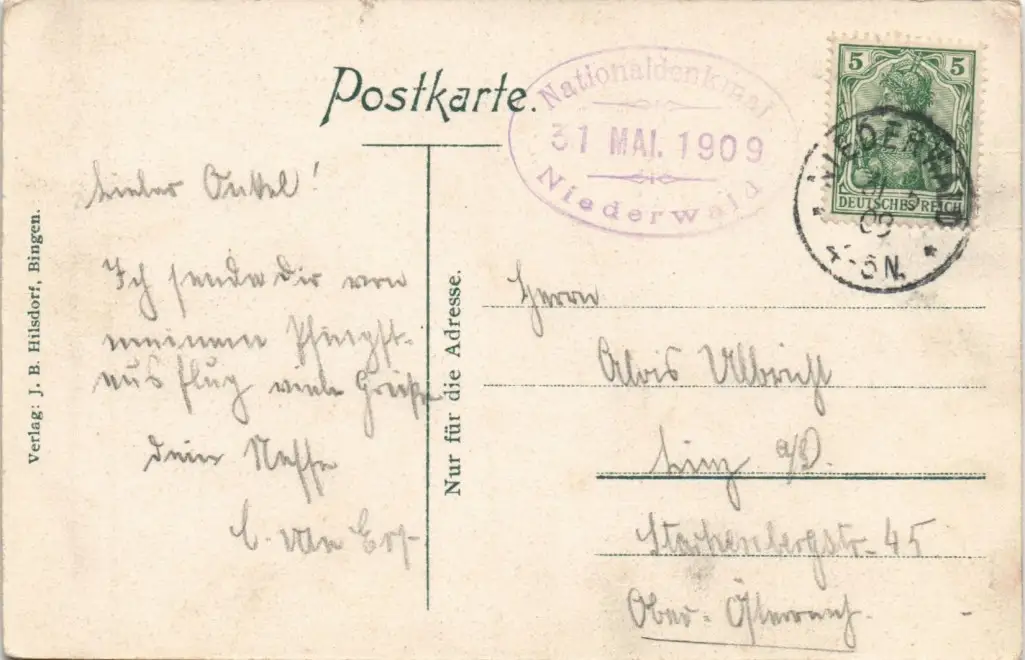 Postkarte.
Nationaldenkmal
31 MAI. 1909
Niederwald
5 5
DEUTSCHES REICH
NIEDERWALD
09
N.
Lieber Onkel!
Ich sende dir von
meinem Pfingst-
ausflug viele Grüße
dein Neffe
Herrn
Alois Ulbricht
Linz a/D.
Starhembergstr. 45
Ober-Österreich.
Nur für die Adresse.
Verlag: J. B. Hilsdorf, Bingen.